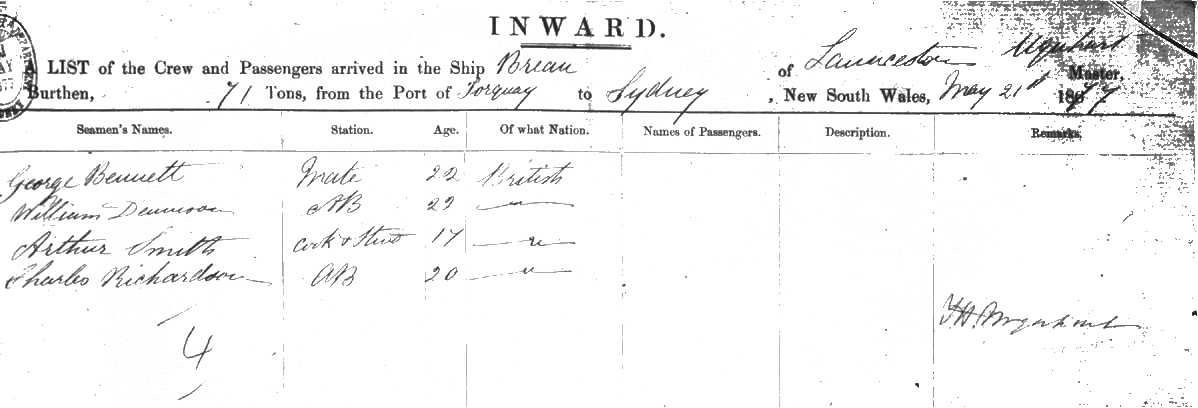 INWARD.
A LIST of the Crew and Passengers arrived in the Ship Brean of Launceston Urquhart Master,
Burthen, 71 Tons, from the Port of Torquay to Sydney, New South Wales, May 21st 1877
Seamen's Names. Station. Age. Of what Nation. Names of Passengers. Description. Remarks.
George Bennett Mate 22 British
William Dennison AB 22 "
Arthur Smith Cook & Stwd 17 "
Charles Richardson AB 20 "
Urquhart
4